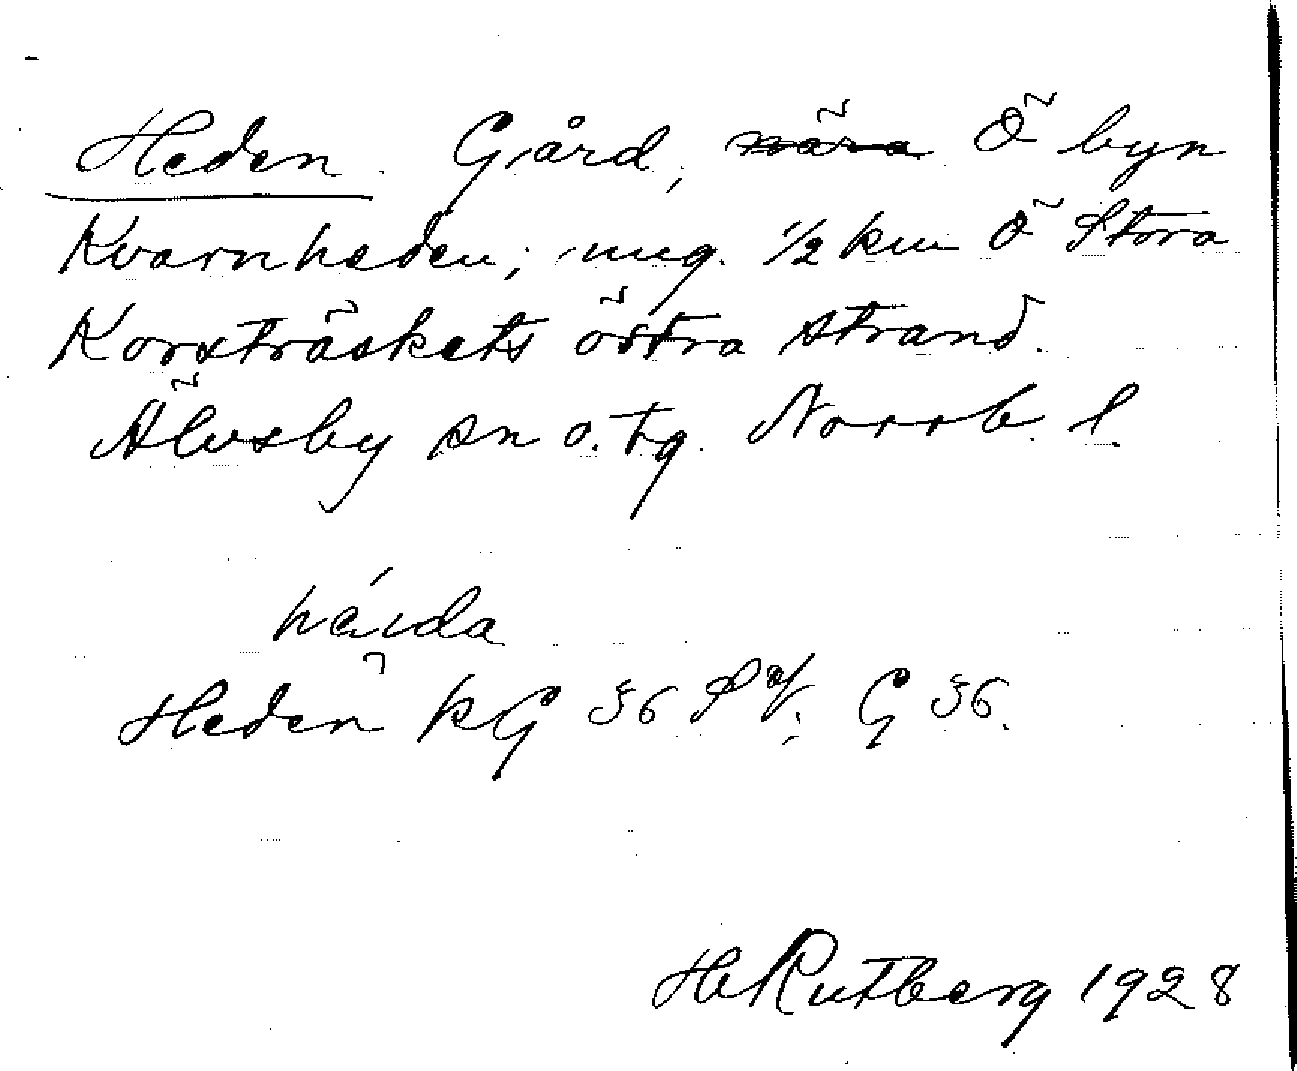 Heden. Gård, ~~nära~~ Ö byn
Kvarnheden; ung. 1/2 km Ö Stora
Korsträskets östra strand.
Älvsby sn o. tg. Norrb. l.
héida
Heden kG §6 G §6.
H Rutberg 1928